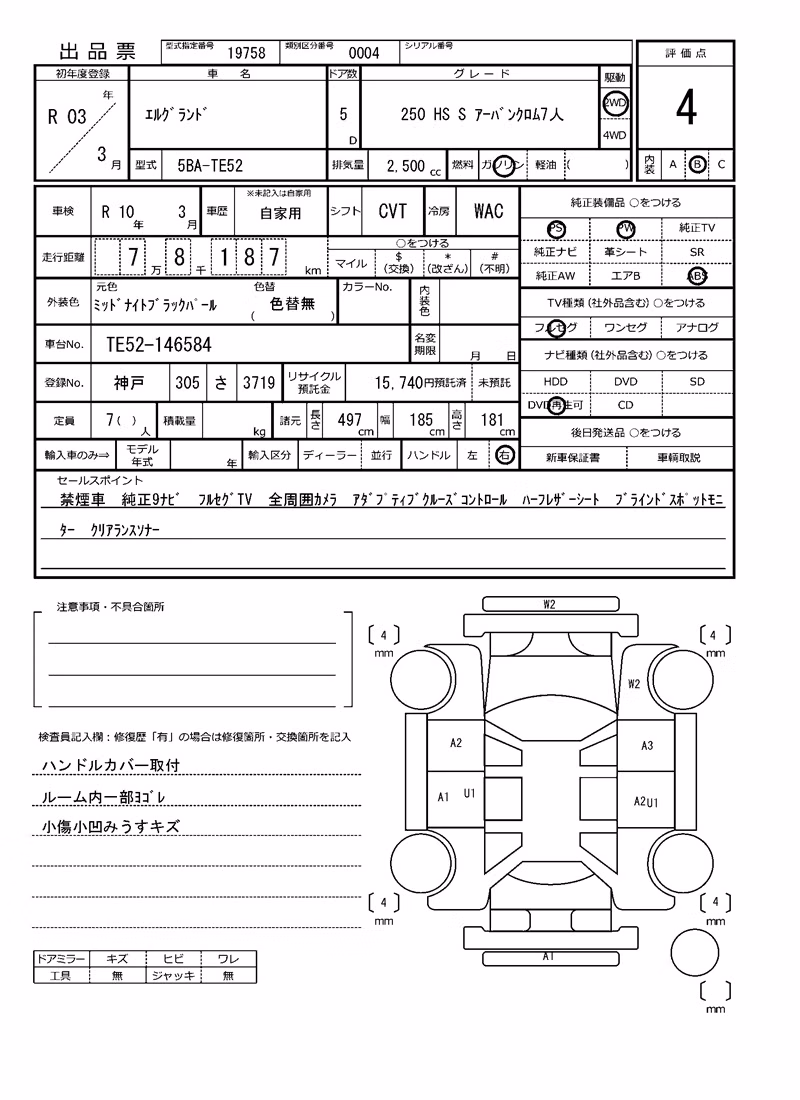 出品票 型式指定番号 19758 類別区分番号 0004 シリアル番号 評価点
初年度登録 車名 ドア数 グレード 駆動
R 03 年 3 月 エルグランド 5 D 250 HS S アーバンクロム7人 2WD 4WD 4
型式 5BA-TE52 排気量 2,500 cc 燃料 ガソリン 軽油 ( ) 内装 A B C
車検 R 10 年 3 月 車歴 ※未記入は自家用 自家用 シフト CVT 冷房 WAC 純正装備品 ○をつける
PS PW 純正TV
走行距離 7 万 8 千 1 8 7 km ○をつける
マイル $ (交換) * (改ざん) # (不明)
純正ナビ 革シート SR
純正AW エアB ABS
外装色 元色 ミッドナイトブラックパール 色替 ( 色替無 ) カラーNo. 内装色
TV種類(社外品含む)○をつける
フルセグ ワンセグ アナログ
車台No. TE52-146584 名変期限 月 日
ナビ種類(社外品含む)○をつける
登録No. 神戸 305 さ 3719 リサイクル預託金 15,740円預託済 未預託
HDD DVD SD
DVD再生可 CD
定員 7( )人 積載量 kg 諸元 長さ 497 cm 幅 185 cm 高さ 181 cm
後日発送品 ○をつける
輸入車のみ⇒ モデル年式 年 輸入区分 ディーラー 並行 ハンドル 左 右
新車保証書 車輌取説
セールスポイント
禁煙車 純正9ナビ フルセグTV 全周囲カメラ アダプティブクルーズコントロール ハーフレザーシート ブラインドスポットモニ
ター クリアランスソナー
注意事項・不具合箇所
検査員記入欄:修復歴「有」の場合は修復箇所・交換箇所を記入
ハンドルカバー取付
ルーム内一部ヨゴレ
小傷小凹みうすキズ
ドアミラー キズ ヒビ ワレ
工具 無 ジャッキ 無
W2
4 mm
4 mm
W2
A2 A3
A1 U1 A2 U1
4 mm
4 mm
A1
mm